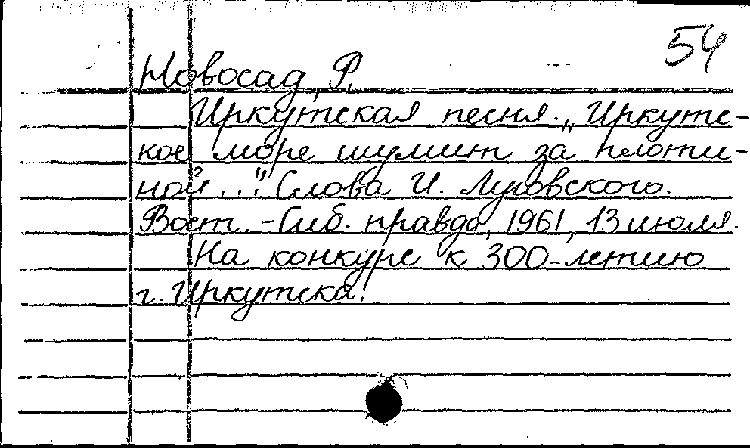 54
Новосад, Р.
Иркутская песня. „Иркутс-
кое море шумит за плоти-
ной..." Слова И. Луговского.
Вост.-Сиб. правда, 1961, 13 июля.
На конкурс к 300-летию
г. Иркутска.